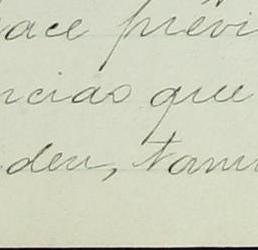 ace previ
ncias que
den, tam